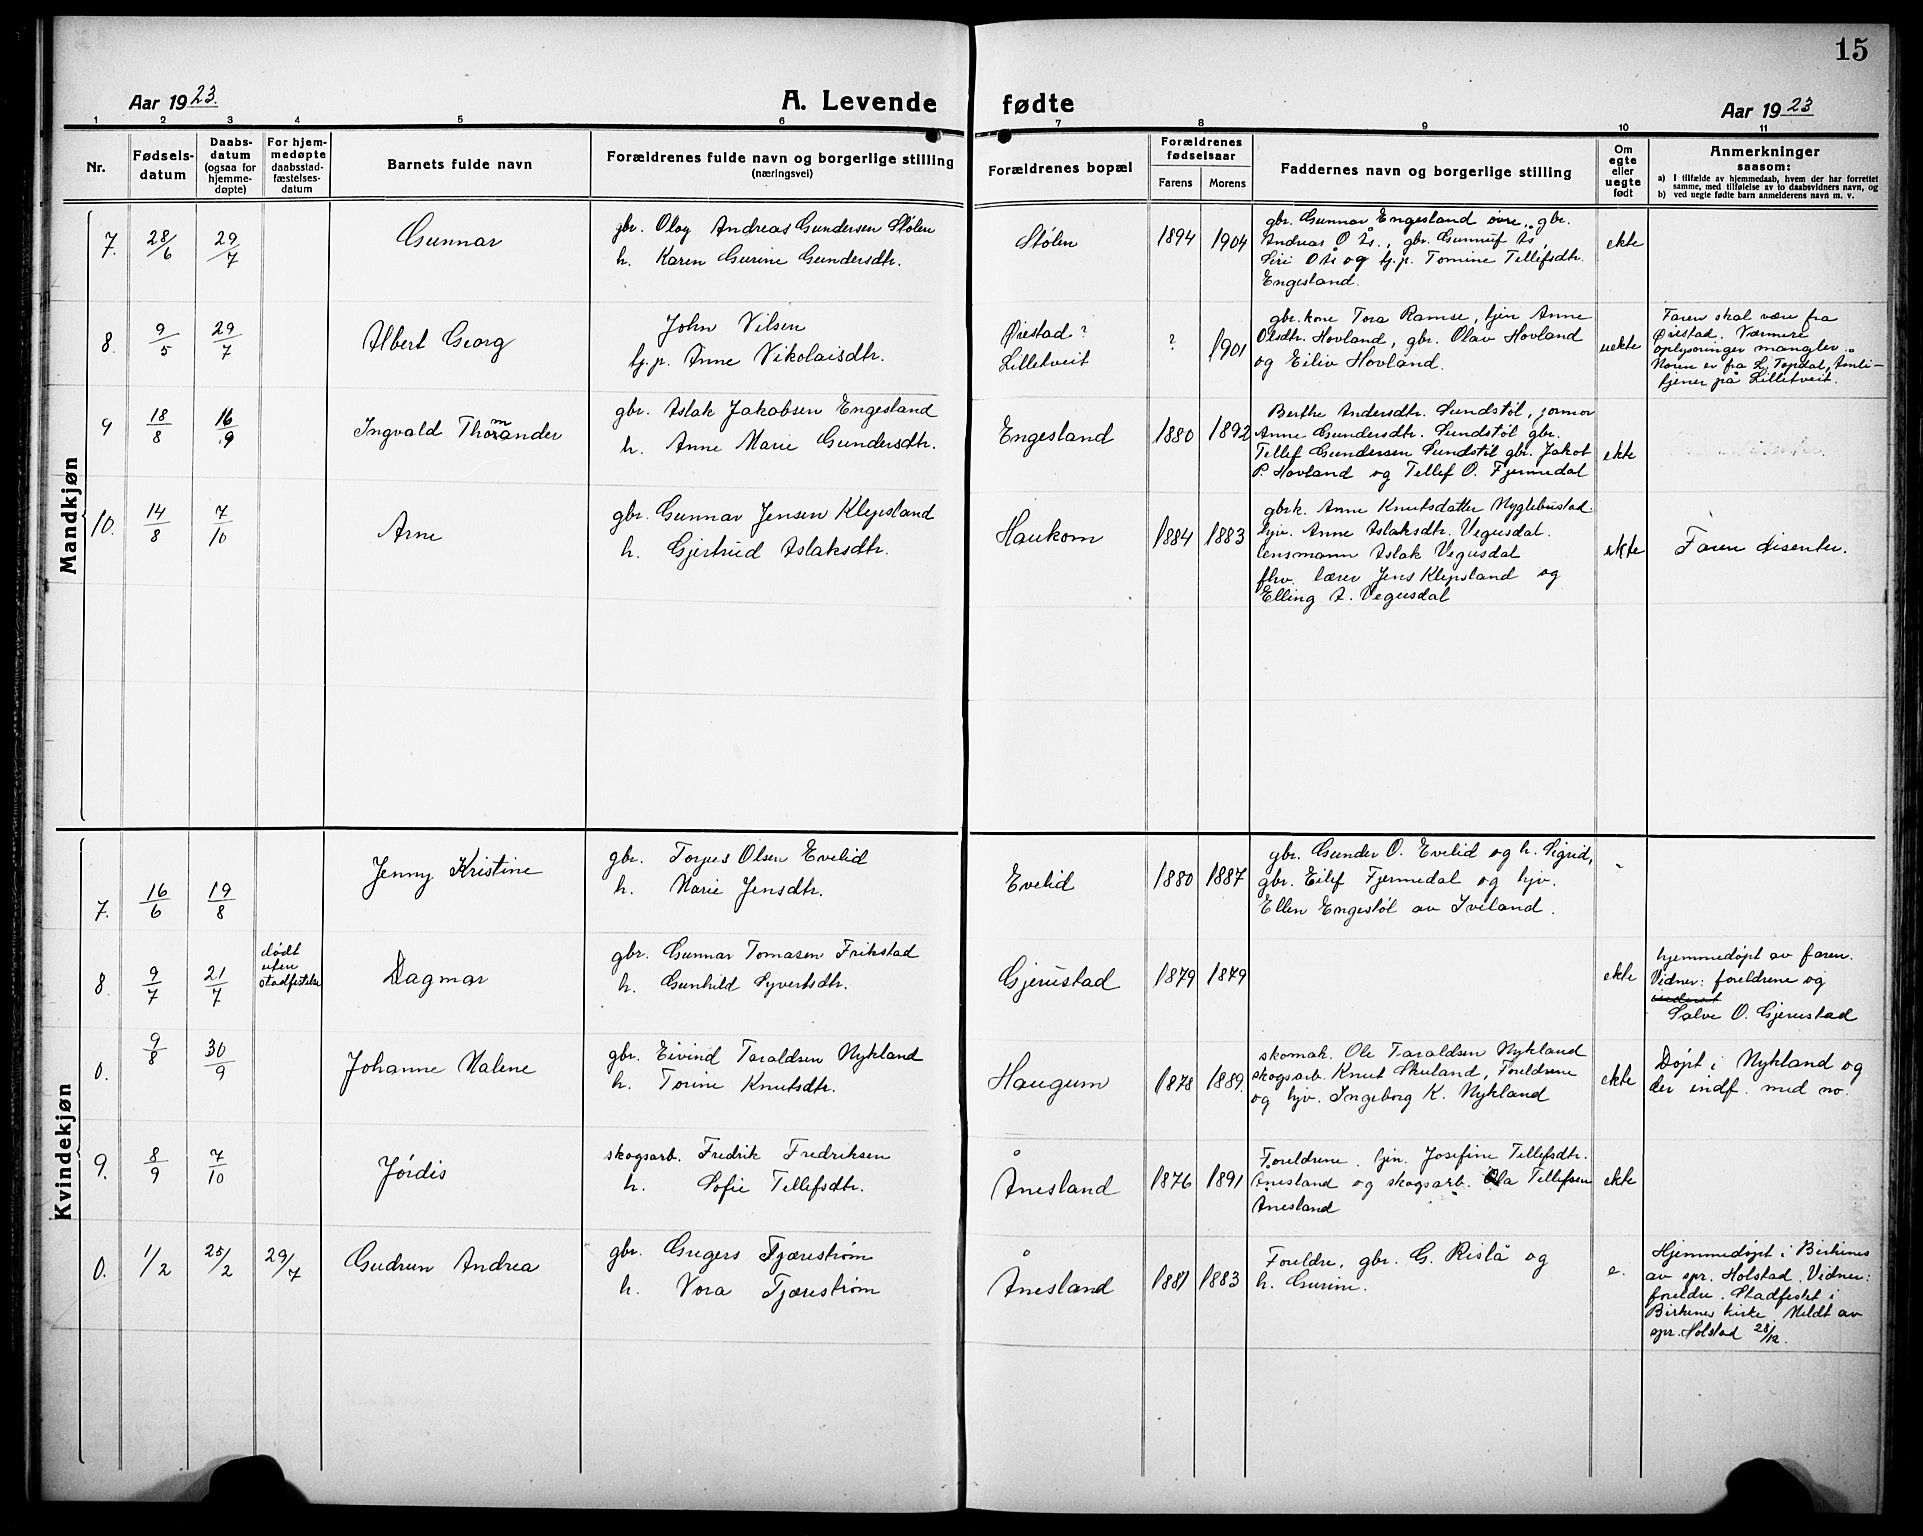 15
Aar 1923.
A. Levende fødte
Aar 1923
1 2 3 4 5 6 7 8 9 10 11
Nr.
Fødsels-
datum
Daabs-
datum
(ogsaa for
hjemme-
døpte)
For hjem-
medøpte
daabsstad-
fæstelses-
datum
Barnets fulde navn
Forældrenes fulde navn og borgerlige stilling
(næringsvei)
Forældrenes bopæl
Forældrenes
fødselsaar
Farens Morens
Faddernes navn og borgerlige stilling
Om
egte
eller
uegte
født
Anmerkninger
saasom:
a) I tilfælde av hjemmedaab, hvem der har forrettet
samme, med tilføielse av to daabsvidners navn, og
b) ved uegte fødte barn anmelderens navn m. v.
Mandkjøn
7. 28/6 29/7
Gunnar
gbr. Olag Andreas Gundersen Stølen
h. Karen Gurine Gundersdtr.
Stølen
1894 1904
gbr. Gunnar Engesland øvre, gbr.
Andreas O. Ås., gbr. Gunnuf Ås,
Siri O. Ås og tj.p. Tomine Tellefsdtr.
Engesland.
ekte
8. 9/5 29/7
Albert Georg
John Nilsen
tj.p. Anne Nikolaisdtr.
Øiestad?
Lilletveit
? 1901
gbr. kone Tora Ramse, tjen Anne
Olsdtr. Hovland, gbr. Olav Hovland
og Eiliv Hovland.
uekte
Faren skal være fra
Øiestad. Nærmere
oplysninger mangler.
Moren er fra Tovdal, Amli-
tjener på Lilletveit.
9 18/8 16/9
Ingvald Thormander
gbr. Aslak Jakobsen Engesland
h. Anne Marie Gundersdtr.
Engesland
1880 1892
Berthe Andersdtr. Sundstøl, jormor
Anne Gundersdtr. Sundstøl gbr.
Tellef Gundersen Sundstøl gbr. Jakob
P. Hovland og Tellef O. Fjermedal
ekte
10. 14/8 7/10
Arne
gbr. Gunnar Jensen Klepsland
h. Gjertrud Aslaksdtr.
Haukom
1884 1883
gbrk. Anne Knutsdatter Myglebustad
hjv. Anne Aslaksdtr. Vegusdal.
lensmann Aslak Vegusdal
fhv. lærer Jens Klepsland og
Elling A. Vegusdal
ekte
Faren disenter.
Kvindekjøn
7. 16/6 19/8
Jenny Kristine
gbr. Torjus Olsen Evelid
h. Marie Jensdtr.
Evelid
1880 1887
gbr. Gunder O. Evelid og h. Sigrid,
gbr. Eilef Fjermedal og hjv.
Ellen Engestøl av Iveland.
"
8. 9/7 21/7
dødt
uten
stadfestelse
Dagmar
gbr. Gunnar Tomasen Frikstad
h. Gunhild Syvertsdtr.
Gjerustad
1879 1879
ekte
hjemmedøpt av faren.
Vidner: foreldrene og
Salve O. Gjerustad
0. 9/8 30/9
Johanne Malene
gbr. Eivind Taraldsen Nykland
h. Torine Knutsdtr.
Haugum
1878 1889.
skomak. Ole Taraldsen Nykland
skogsarb. Knut Skuland, Foreldrene
og hjv. Ingeborg K. Nykland
ekte
Døpt i Nykland og
der indf. med no.
9. 8/9 7/10
Jórdis
skogsarb. Fredrik Fredriksen
h. Sofie Tellefsdtr.
Ånesland
1876 1891
Foreldrene. tjen. Josefine Tellefsdtr.
Ånesland og skogsarb. Ola Tellefsen
Ånesland
ekte
0. 1/2 25/2 29/7
Gudrun Andrea
gbr. Gregers Tjærestrøm
h. Nora Tjærestrøm
Ånesland
1881 1883
Foreldre, gbr. G. Rislå og
h. Gurine.
e.
Hjemmedøpt i Birkenes
av spr. Holstad. Vidner:
foreldre. Stadfestet i
Birkenes kirke. Meldt av
spr. Holstad 28/12.